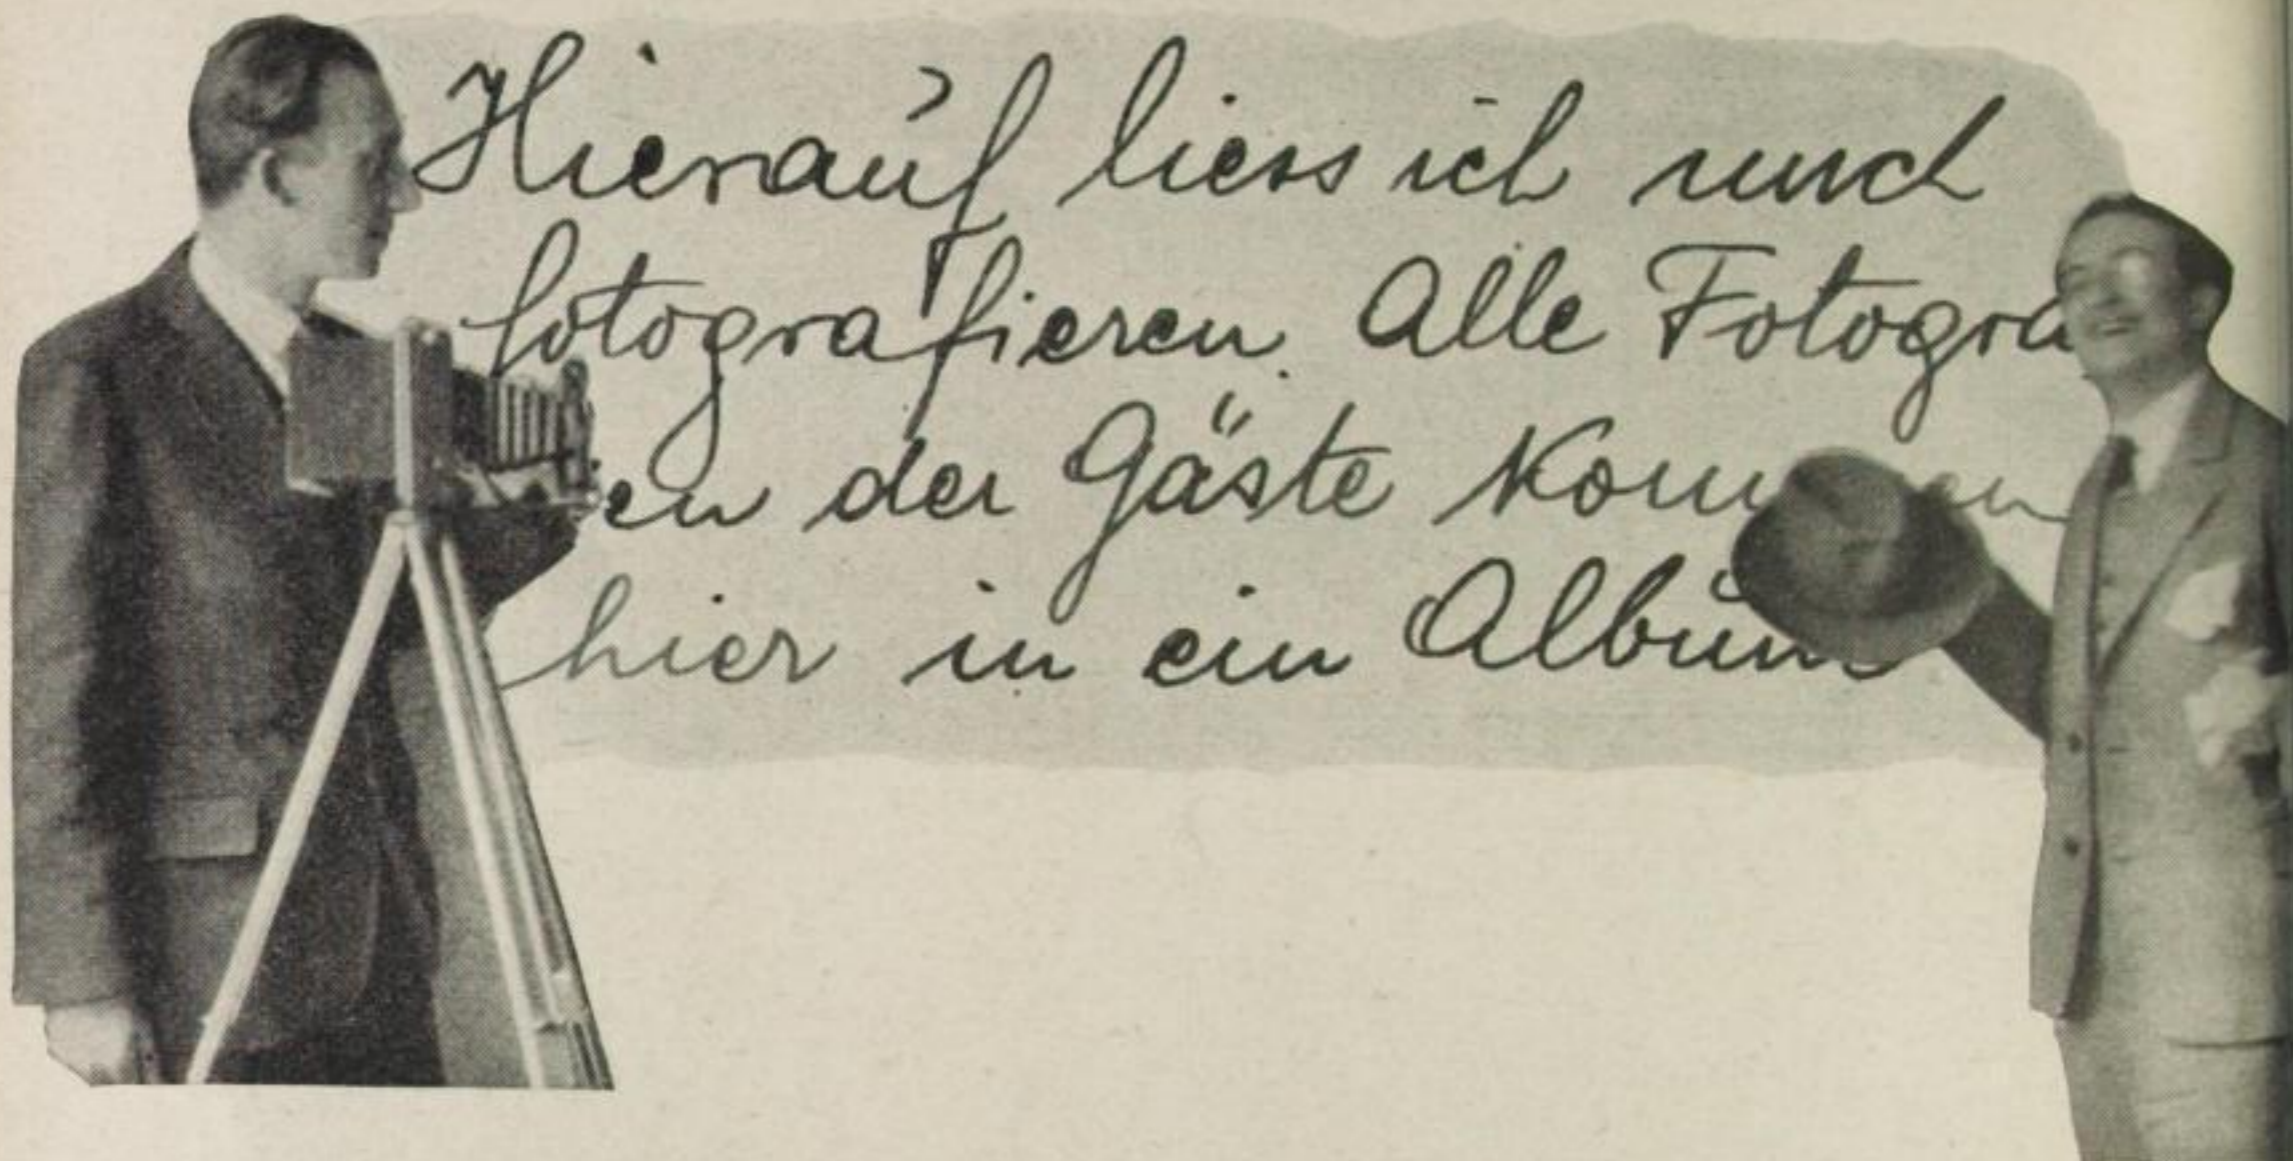 Hierauf liess ich mich
fotografieren. Alle Fotogra
en der Gäste kommen
hier in ein Album